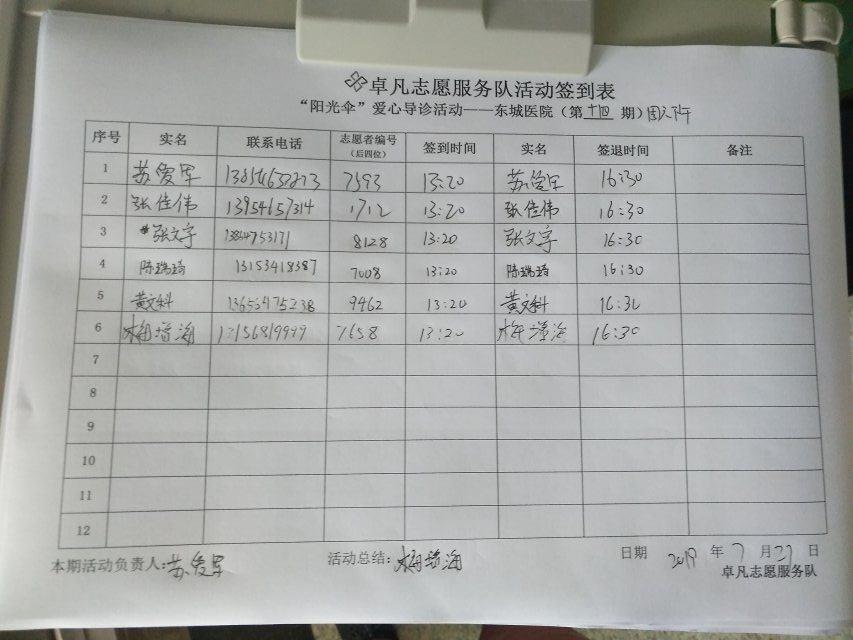 卓凡志愿服务队活动签到表
“阳光伞”爱心导诊活动——东城医院（第十四期）周六下午
序号 实名 联系电话 志愿者编号（后四位） 签到时间 实名 签退时间 备注
1 苏爱军 7593 13:20 苏爱军 16:30
2 张佳伟 13954657314 1712 13:20 张佳伟 16:30
3 张文宇 8128 13:20 张文宇 16:30
4 陈瑞琦 13153418387 7008 13:20 陈瑞琦 16:30
5 黄文科 13653475238 9462 13:20 黄文科 16:30
6 梅增海 7658 13:20 梅增海 16:30
7
8
9
10
11
12
本期活动负责人:苏爱军 活动总结:梅增海 日期 2019 年 7 月 27 日
卓凡志愿服务队